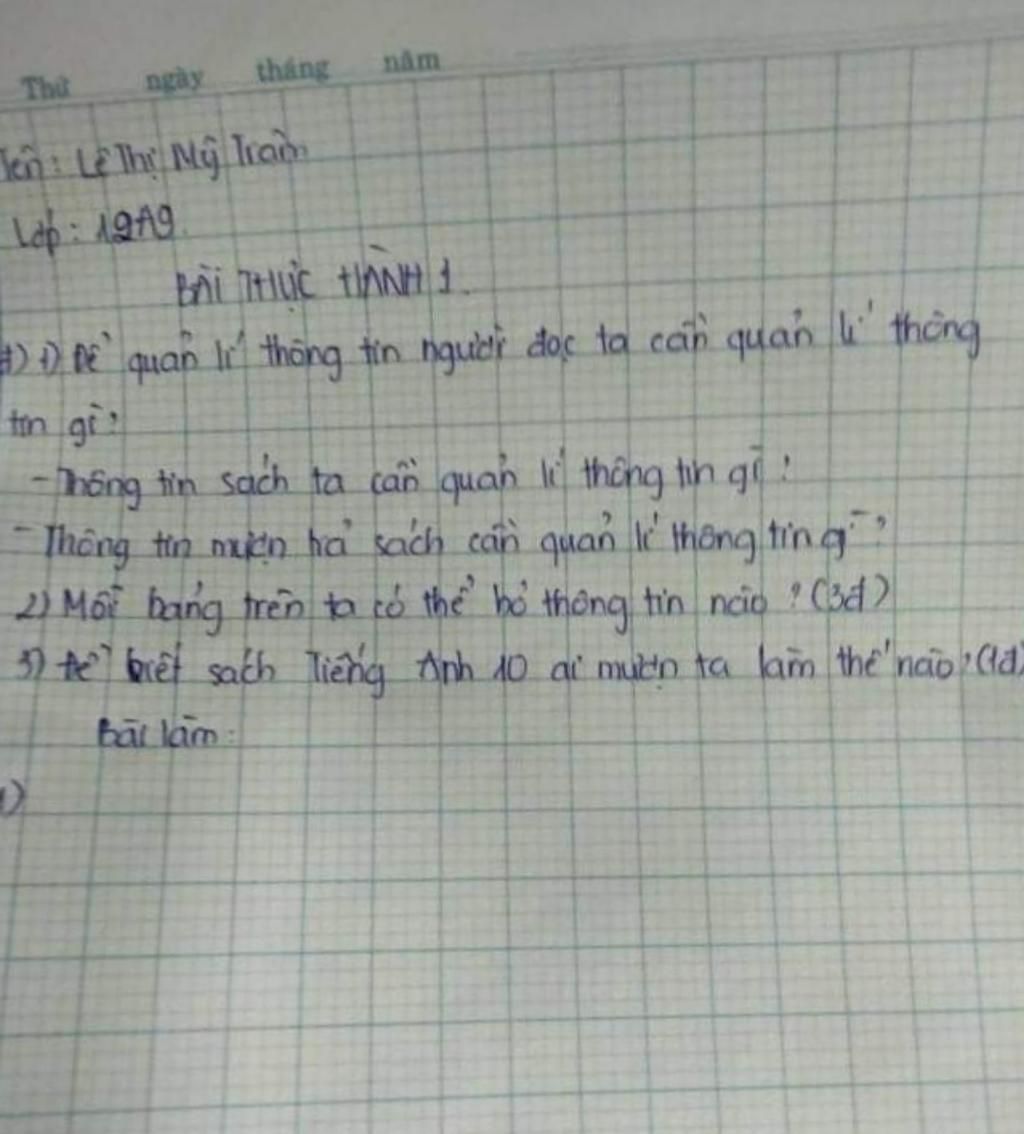 Thứ ngày tháng năm
Tên: Lê Thị Mỹ Trân
Lớp: 12A9.
BÀI THỰC HÀNH 1.
1) Để quản lí thông tin người đọc ta cần quản lí thông
tin gì?
- Thông tin sách ta cần quản lí thông tin gì?
- Thông tin mượn trả sách cần quản lí thông tin gì?
2) Mỗi bảng trên ta có thể bỏ thông tin nào? (3đ)
3) Để biết sách Tiếng Anh 10 ai mượn ta làm thế nào? (1đ)
Bài làm:
1)